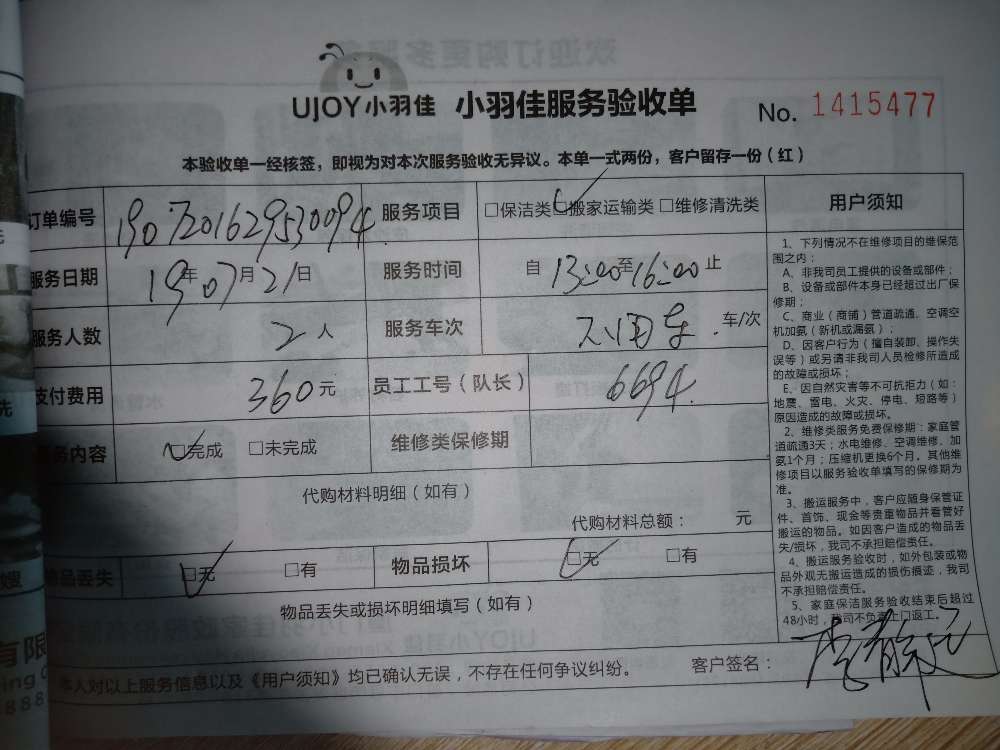 UJOY小羽佳 小羽佳服务验收单 No. 1415477
本验收单一经核签，即视为对本次服务验收无异议。本单一式两份，客户留存一份（红）
订单编号 1907201629530094 服务项目 □保洁类 □搬家运输类 □维修清洗类
服务日期 19年07月21日 服务时间 自13:00至16:00止
服务人数 2人 服务车次 不用车 车/次
支付费用 360元 员工工号（队长） 6694
服务内容 □完成 □未完成 维修类保修期
代购材料明细（如有）
代购材料总额： 元
物品丢失 □无 □有 物品损坏 □无 □有
物品丢失或损坏明细填写（如有）
本人对以上服务信息以及《用户须知》均已确认无误，不存在任何争议纠纷。 客户签名：
用户须知
1、下列情况不在维修项目的维保范
围之内：
A、非我司员工提供的设备或部件；
B、设备或部件本身已经超过出厂保
修期；
C、商业（商铺）管道疏通、空调空
机加氨（新机或漏氨）；
D、因客户行为（擅自装卸、操作失
误等）或另请非我司人员检修所造成
的故障或损坏；
E、因自然灾害等不可抗拒力（如：
地震、雷电、火灾、停电、短路等）
原因造成的故障或损坏。
2、维修类服务免费保修期：家庭管
道疏通3天；水电维修、空调维修、加
氨1个月；压缩机更换6个月。其他维
修项目以服务验收单填写的保修期为
准。
3、搬运服务中，客户应随身保管证
件、首饰、现金等贵重物品并看管好
搬运的物品。如因客户造成的物品丢
失/损坏，我司不承担赔偿责任。
4、搬运服务验收时，如外包装或物
品外观无搬运造成的损伤痕迹，我司
不承担赔偿责任。
5、家庭保洁服务验收结束后超过
48小时，我司不负责上门返工。